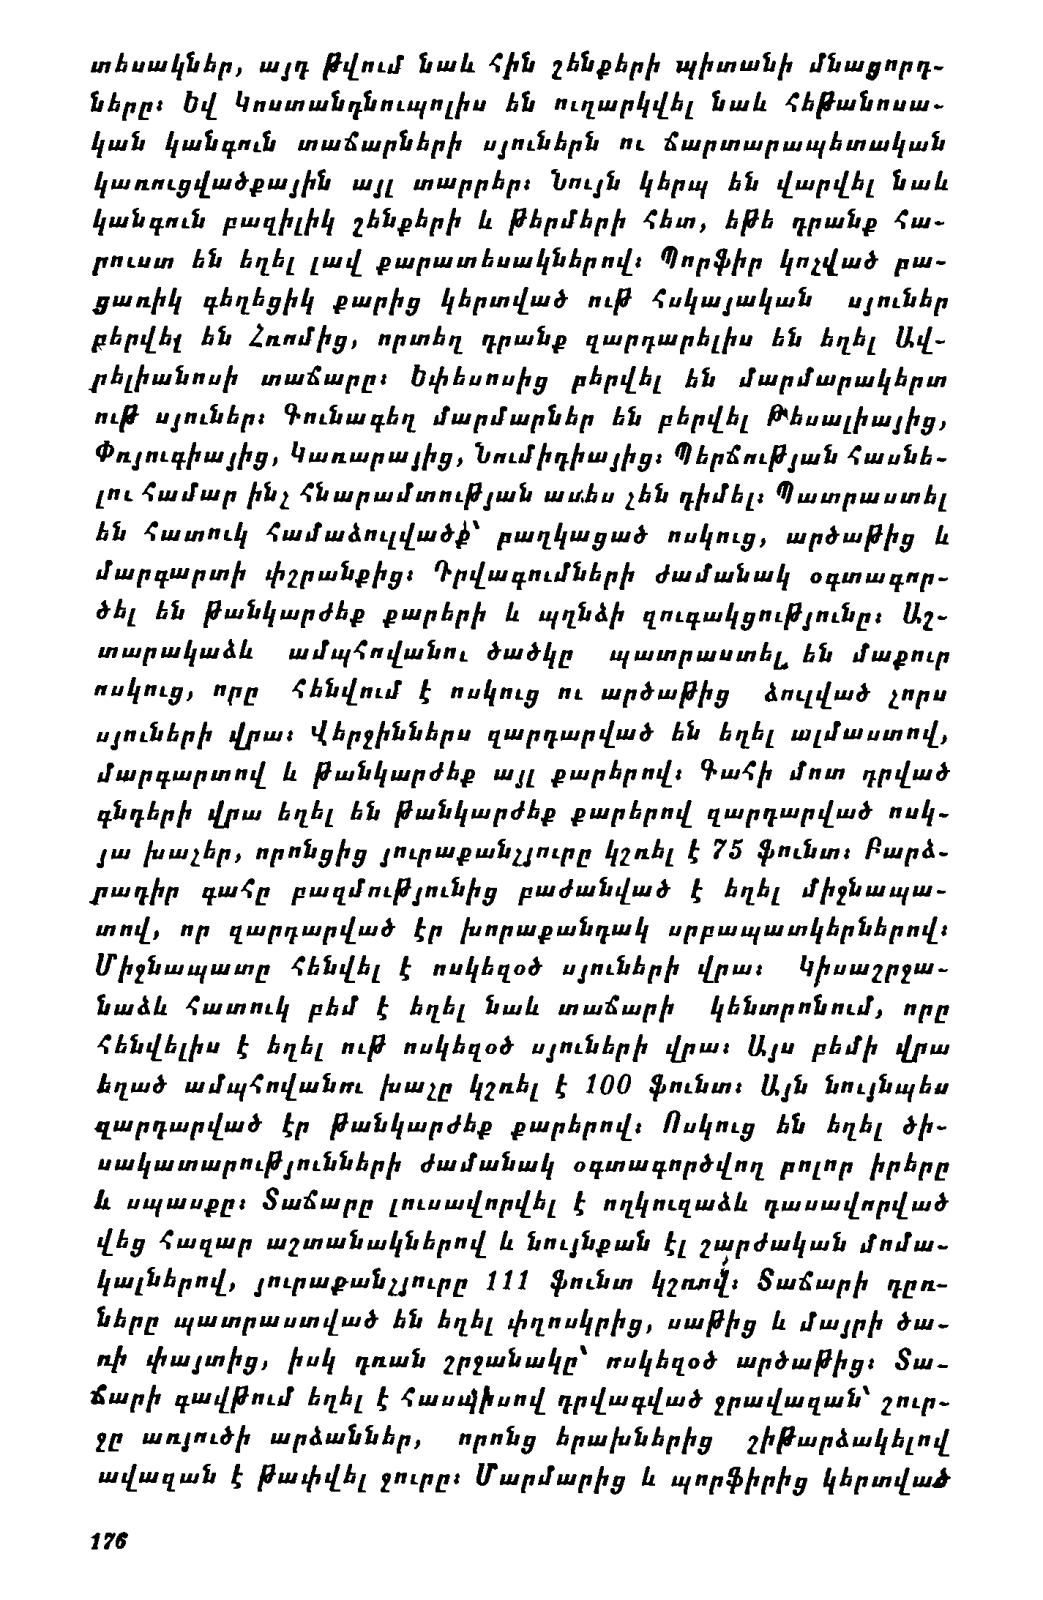 տեսակներ, այդ թվում նաև հին շենքերի պիտանի մնացորդ-
ները։ Եվ Կոստանդնուպոլիս են ուղարկվել նաև հեթանոսա-
կան կանգուն տաճարների սյուներն ու ճարտարապետական
կառուցվածքային այլ տարրեր։ Նույն կերպ են վարվել նաև
կանգուն բազիլիկ շենքերի և թերմերի հետ, եթե դրանք հա-
րուստ են եղել լավ քարատեսակներով։ Պորֆիր կոչված բա-
ցառիկ գեղեցիկ քարից կերտված ութ հսկայական սյուներ
բերվել են Հռոմից, որտեղ դրանք զարդարելիս են եղել Ավ-
րելիանոսի տաճարը։ Եփեսոսից բերվել են մարմարակերտ
ութ սյուներ։ Գունագեղ մարմարներ են բերվել Թեսալիայից,
Փռյուգիայից, Կառարայից, Նումիդիայից։ Պերճության հասնե-
լու համար ինչ հնարամտության ասես չեն դիմել։ Պատրաստել
են հատուկ համաձուլվածք՝ բաղկացած ոսկուց, արծաթից և
մարգարտի փշրանքից։ Դրվագումների ժամանակ օգտագոր-
ծել են թանկարժեք քարերի և պղնձի զուգակցությունը։ Աշ-
տարակաձև ամպհովանու ծածկը պատրաստել են մաքուր
ոսկուց, որը հենվում է ոսկուց ու արծաթից ձուլված չորս
սյուների վրա։ Վերջիններս զարդարված են եղել ալմաստով,
մարգարտով և թանկարժեք այլ քարերով։ Գահի մոտ դրված
գնդերի վրա եղել են թանկարժեք քարերով զարդարված ոսկ-
յա խաչեր, որոնցից յուրաքանչյուրը կշռել է 75 ֆունտ։ Բարձ-
րադիր գահը բազմությունից բաժանված է եղել միջնապա-
տով, որ զարդարված էր խորաքանդակ սրբապատկերներով։
Միջնապատը հենվել է ոսկեզօծ սյուների վրա։ Կիսաշրջա-
նաձև հատուկ բեմ է եղել նաև տաճարի կենտրոնում, որը
հենվելիս է եղել ութ ոսկեզօծ սյուների վրա։ Այս բեմի վրա
եղած ամպհովանու խաչը կշռել է 100 ֆունտ։ Այն նույնպես
զարդարված էր թանկարժեք քարերով։ Ոսկուց են եղել ծի-
սակատարությունների ժամանակ օգտագործվող բոլոր իրերը
և սպասքը։ Տաճարը լուսավորվել է ողկուզաձև դասավորված
վեց հազար աշտանակներով և նույնքան էլ շարժական մոմա-
կալներով, յուրաքանչյուրը 111 ֆունտ կշռով։ Տաճարի դըռ-
ները պատրաստված են եղել փղոսկրից, սաթից և մայրի ծա-
ռի փայտից, իսկ դռան շրջանակը՝ ոսկեզօծ արծաթից։ Տա-
ճարի գավթում եղել է հասպիսով դրվագված ջրավազան՝ շուր-
ջը առյուծի արձաններ, որոնց երախներից շիթարձակելով
ավազան է թափվել ջուրը։ Մարմարից և պորֆիրից կերտված
176